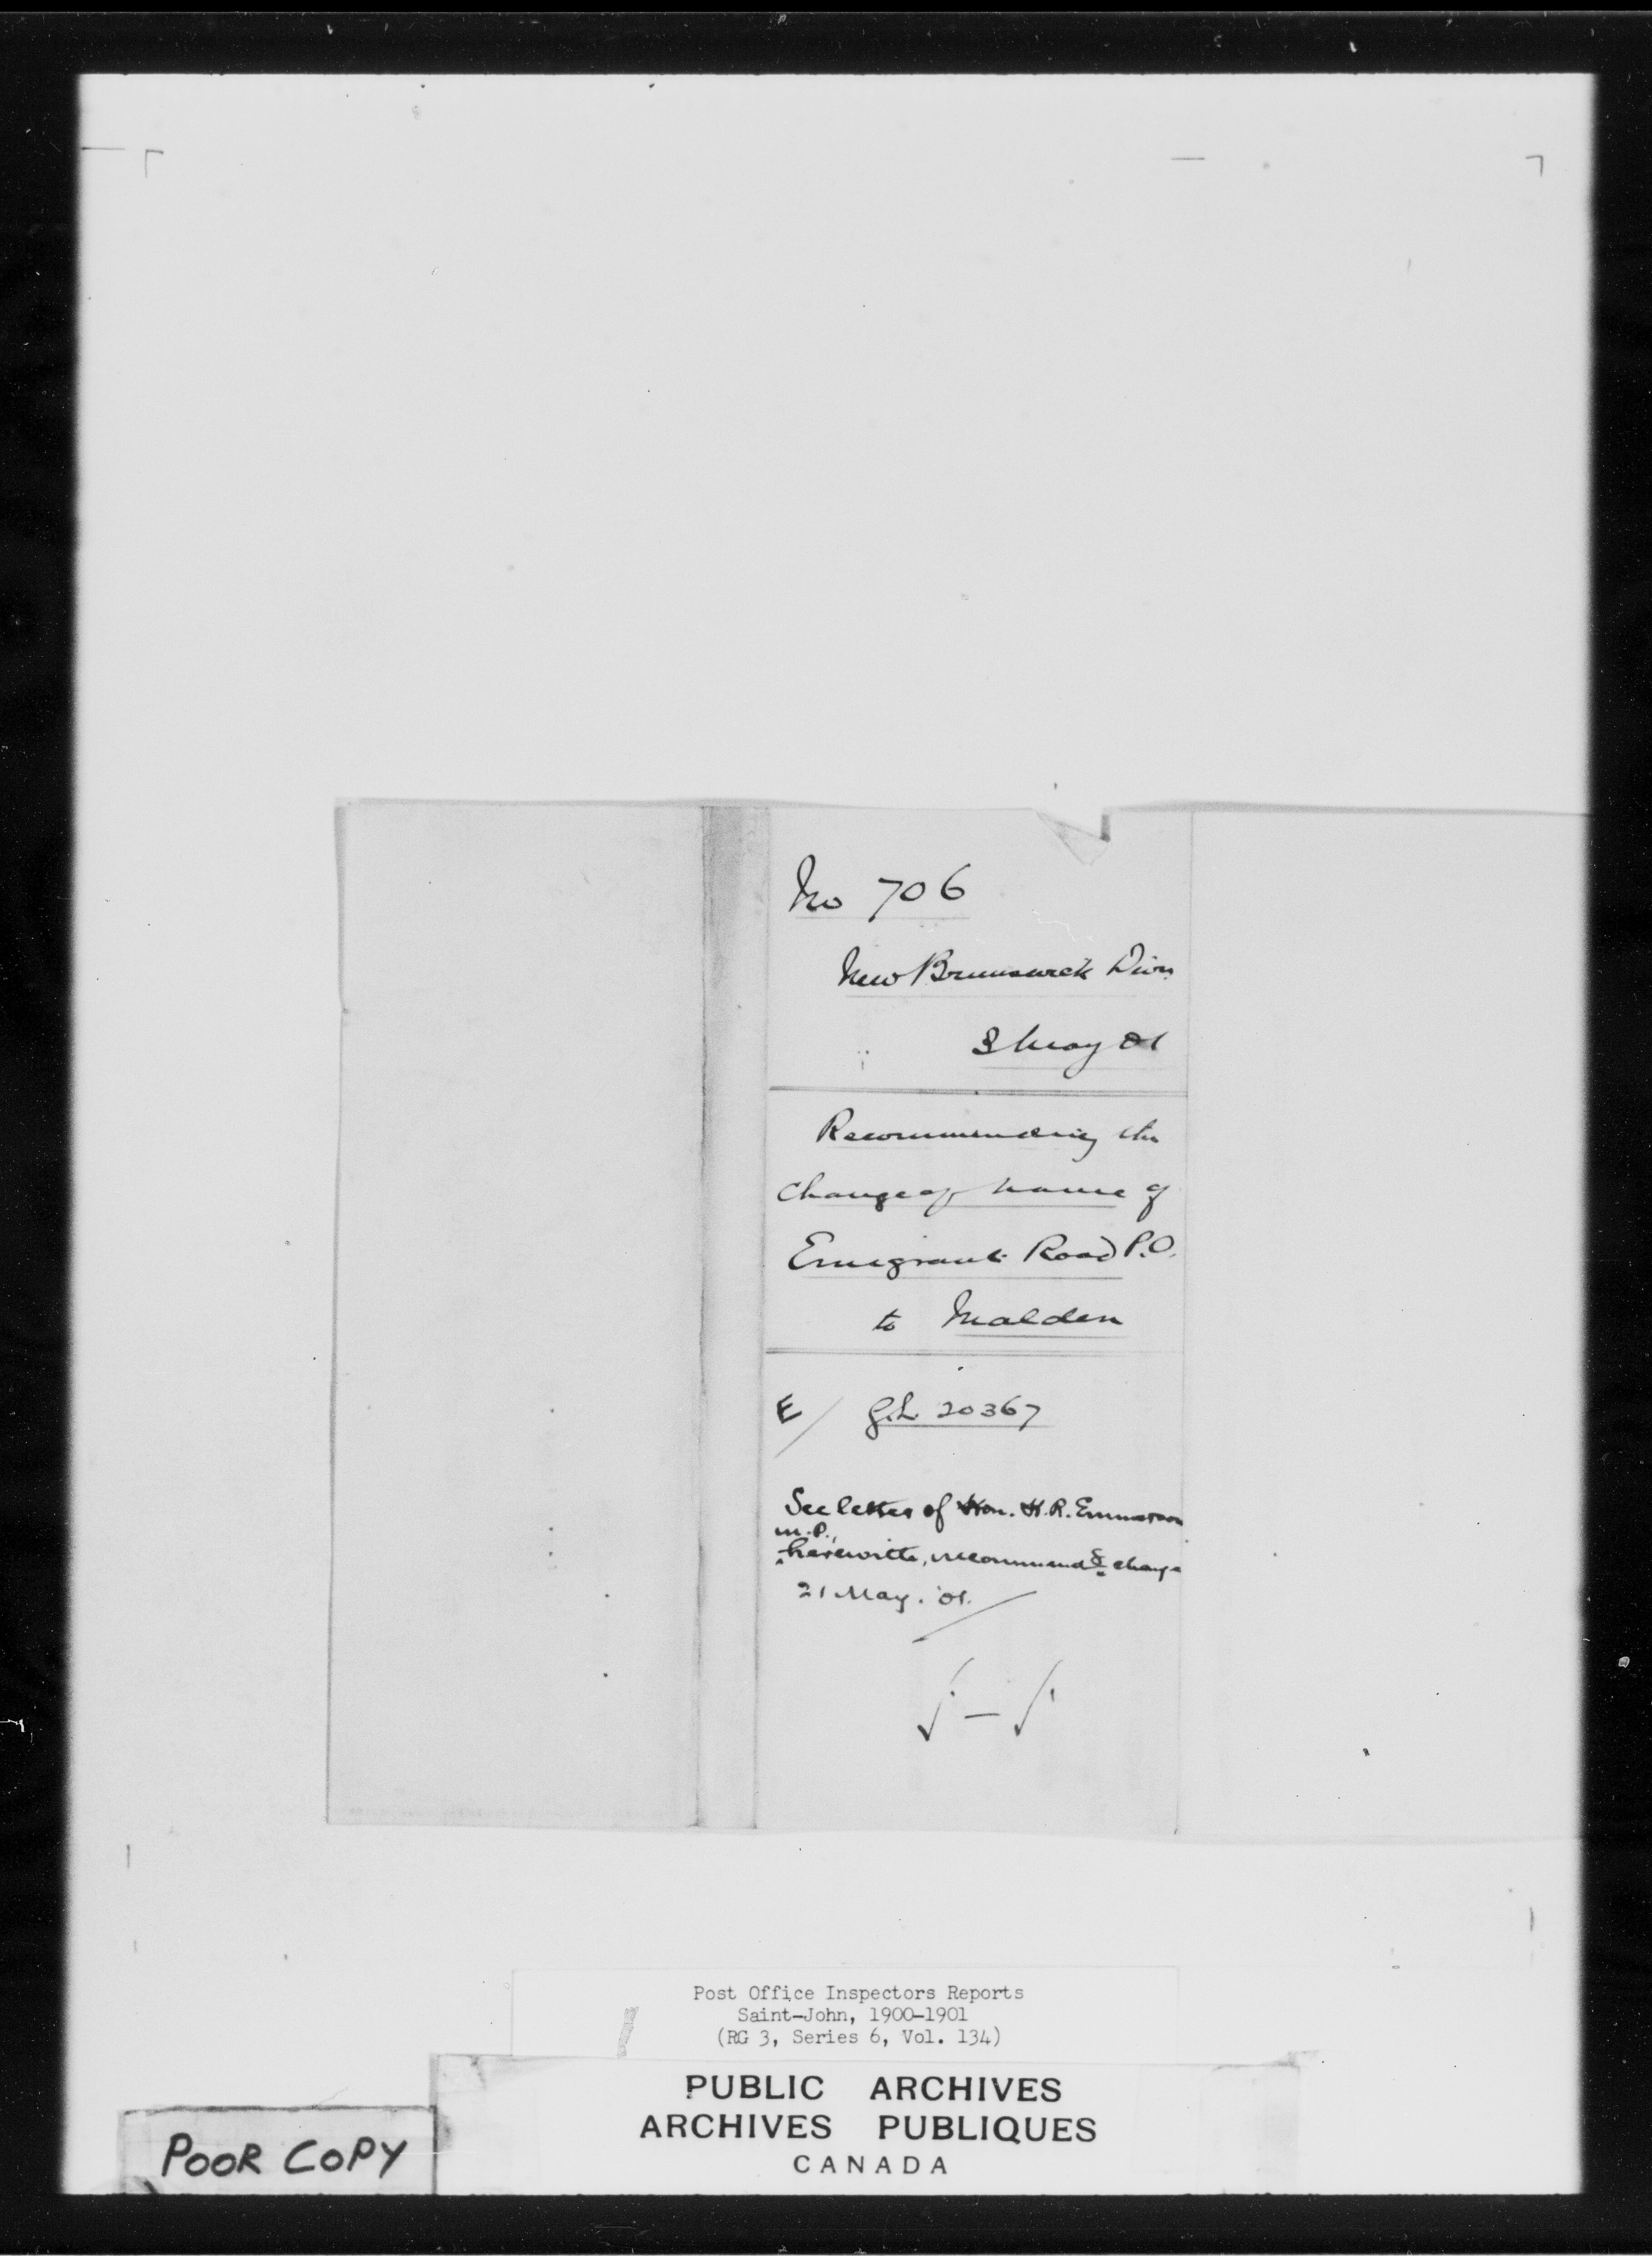 No 706
New Brunswick Divn
3 May 01
Recommending the
change of name of
Emigrant Road P.O.
to Malden
E/ G.L. 20367
See letter of Hon. H. R. Emmerson
M.P.,
herewith, recommendg change
21 May. '01.
Post Office Inspectors Reports
Saint-John, 1900-1901
(RG 3, Series 6, Vol. 134)
PUBLIC ARCHIVES
ARCHIVES PUBLIQUES
CANADA
POOR COPY